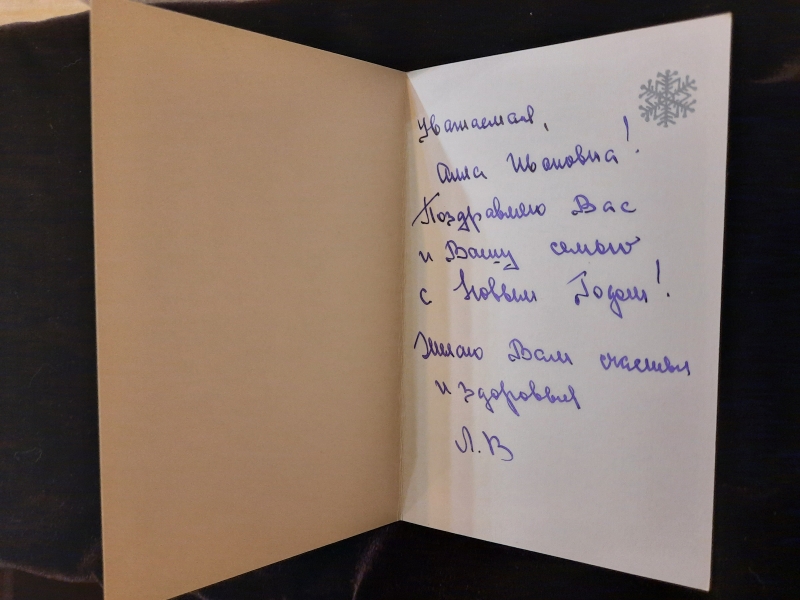 Уважаемая,
Алла Ивановна!
Поздравляю Вас
и Вашу семью
с Новым Годом!
Желаю Вам счастья
и здоровья
Л.В